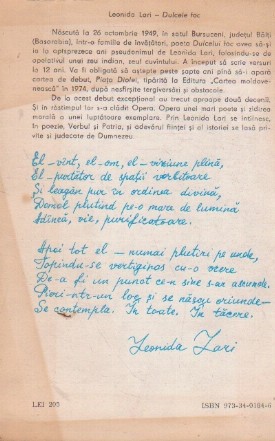 Leonida Lari – Dulcele foc
Născută la 26 octombrie 1949, în satul Bursuceni, județul Bălți
(Basarabia), într-o familie de învățători, poeta Dulcelui foc avea să-și
ia optsprezece ani pseudonimul de Leonida Lari, folosindu-se de
apelativul unei zeu indian, zeul cuvîntului. A început să scrie versuri
la 12 ani. Va fi obligată să aștepte peste șapte ani pînă să-i apară
cartea de debut, Piața Diolei, tipărită la Editura "Cartea moldove-
nească" în 1974, după nesfîrșite tergiversări și obstacole.
De la acest debut excepțional au trecut aproape două decenii.
Și în răstimpul lor s-a clădit Opera. Opera unei mari poete și zidirea
morală a unei luptătoare exemplare. Prin Leonida Lari se întîlnesc,
în poezie, Verbul și Patria, și adevărul ființei și al istoriei se lasă pri-
vite și judecate de Dumnezeu.
El – vînt, el – om, el – viziune plină,
El – purtător de spații vorbitoare
Și leagăn pur în ordinea divină,
Demel plutind pe-o mare de lumină
Adîncă, vie, purificatoare.
Apoi tot el – numai plutiri pe unde,
Topindu-se vertiginos cu-o vrere
De-a fi un punct ce-n sine s-ar ascunde.
Pieri-ntr-un loc și se născu oriunde –
Se contempla. În toate. În tăcere.
Leonida Lari
LEI 205
ISBN 973-34-0104-6